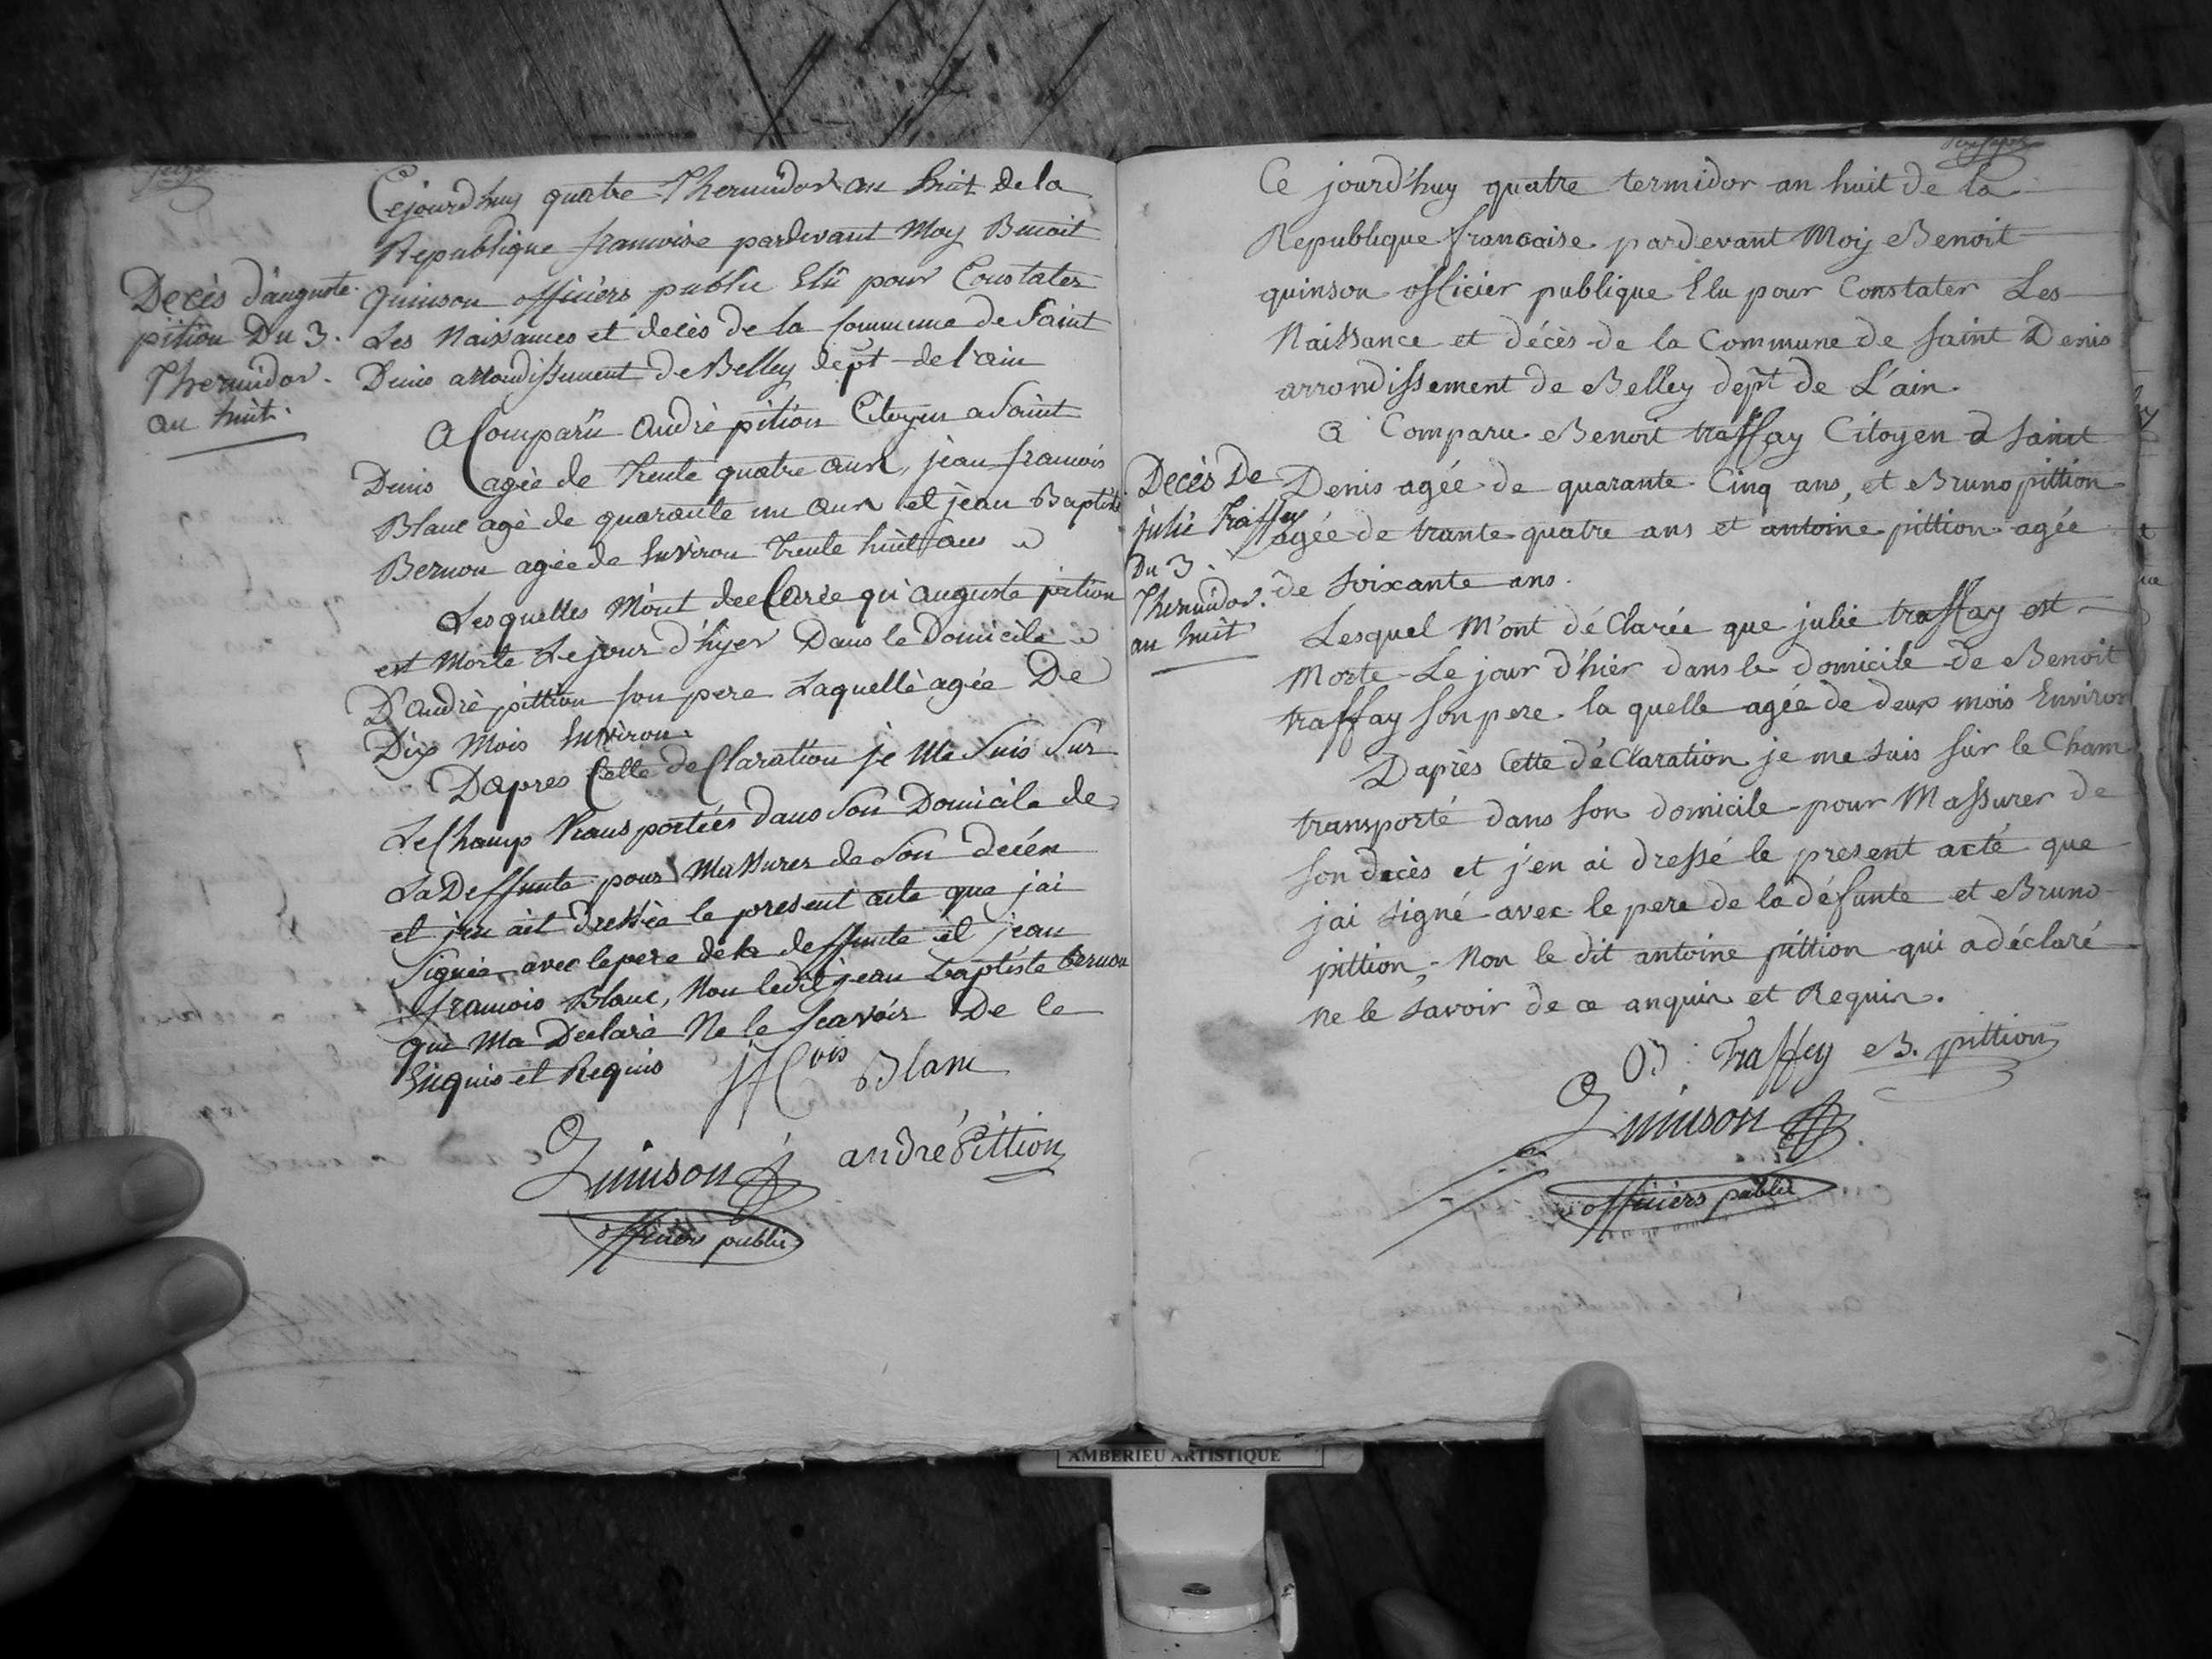 Cejourdhuy quatre Thermidor an huit de la
Republique francoise pardevant Moy Benoit
quinson officiers public Elû pour Constater
Les Naissances et decès de la Commune de Saint
Denis arrondissement de Belley dept de l'ain
Decès d'auguste
pition Du 3.
Thermidor.
an huit.
A Comparû André pition Citoyen a Saint
Denis agée de trente quatre ans, jean francois
Blanc agé de quarante un ans et jean Baptiste
Bernon agée de Environ trente huit ans
Lesquelles M'ont declarée qu'auguste pition
est Morte Le jour d'hyer Dans le Domicile
D'andré pittion son pere Laquelle agée De
Dix Mois Environ
Dapres Cette declaration je Me Suis Sur
Le Champ transportées dans Son Domicile de
La Deffunte pour Massurer de Son decén
et j'en ait Dressée le present acte que j'ai
Signée avec le pere de la deffunte et jean
francois Blanc, Non ledit jean baptiste bernon
qui Ma Declaré Ne le Scavoir De ce
Enquis et Requis
Blanc
Quinson andré Pittion
officiers public
Ce jourd'huy quatre termidor an huit de la
Republique francaise pardevant Moy Benoit
quinson officier publique Elu pour Constater Les
Naissance et décès de la Commune de Saint Denis
arrondissement de Belley dept de L'ain.
a Comparu Benoit traffay Citoyen a Saint
Denis agée de quarante Cinq ans, et Bruno pittion
agée de trante quatre ans et antoine pittion agée
de soixante ans.
Decès De
julie Traffey
Du 3.
Thermidor.
an huit
Lesquel M'ont déClarée que julie traffay est
Morte Le jour d'hier dans le domicile de Benoit
traffay son pere la quelle agée de deux mois Environ
Daprès Cette déClaration je me suis sur le Cham
transporté dans son domicile pour Massurer de
son decès et j'en ai dressé le present acte que
jai signé avec le pere de la défunte et Bruno
pittion, Non le dit antoine pittion qui a déclaré
ne le savoir de ce anquis et Requis.
B. Traffey B. pittion
Quinson
officiers public
AMBERIEU ARTISTIQUE